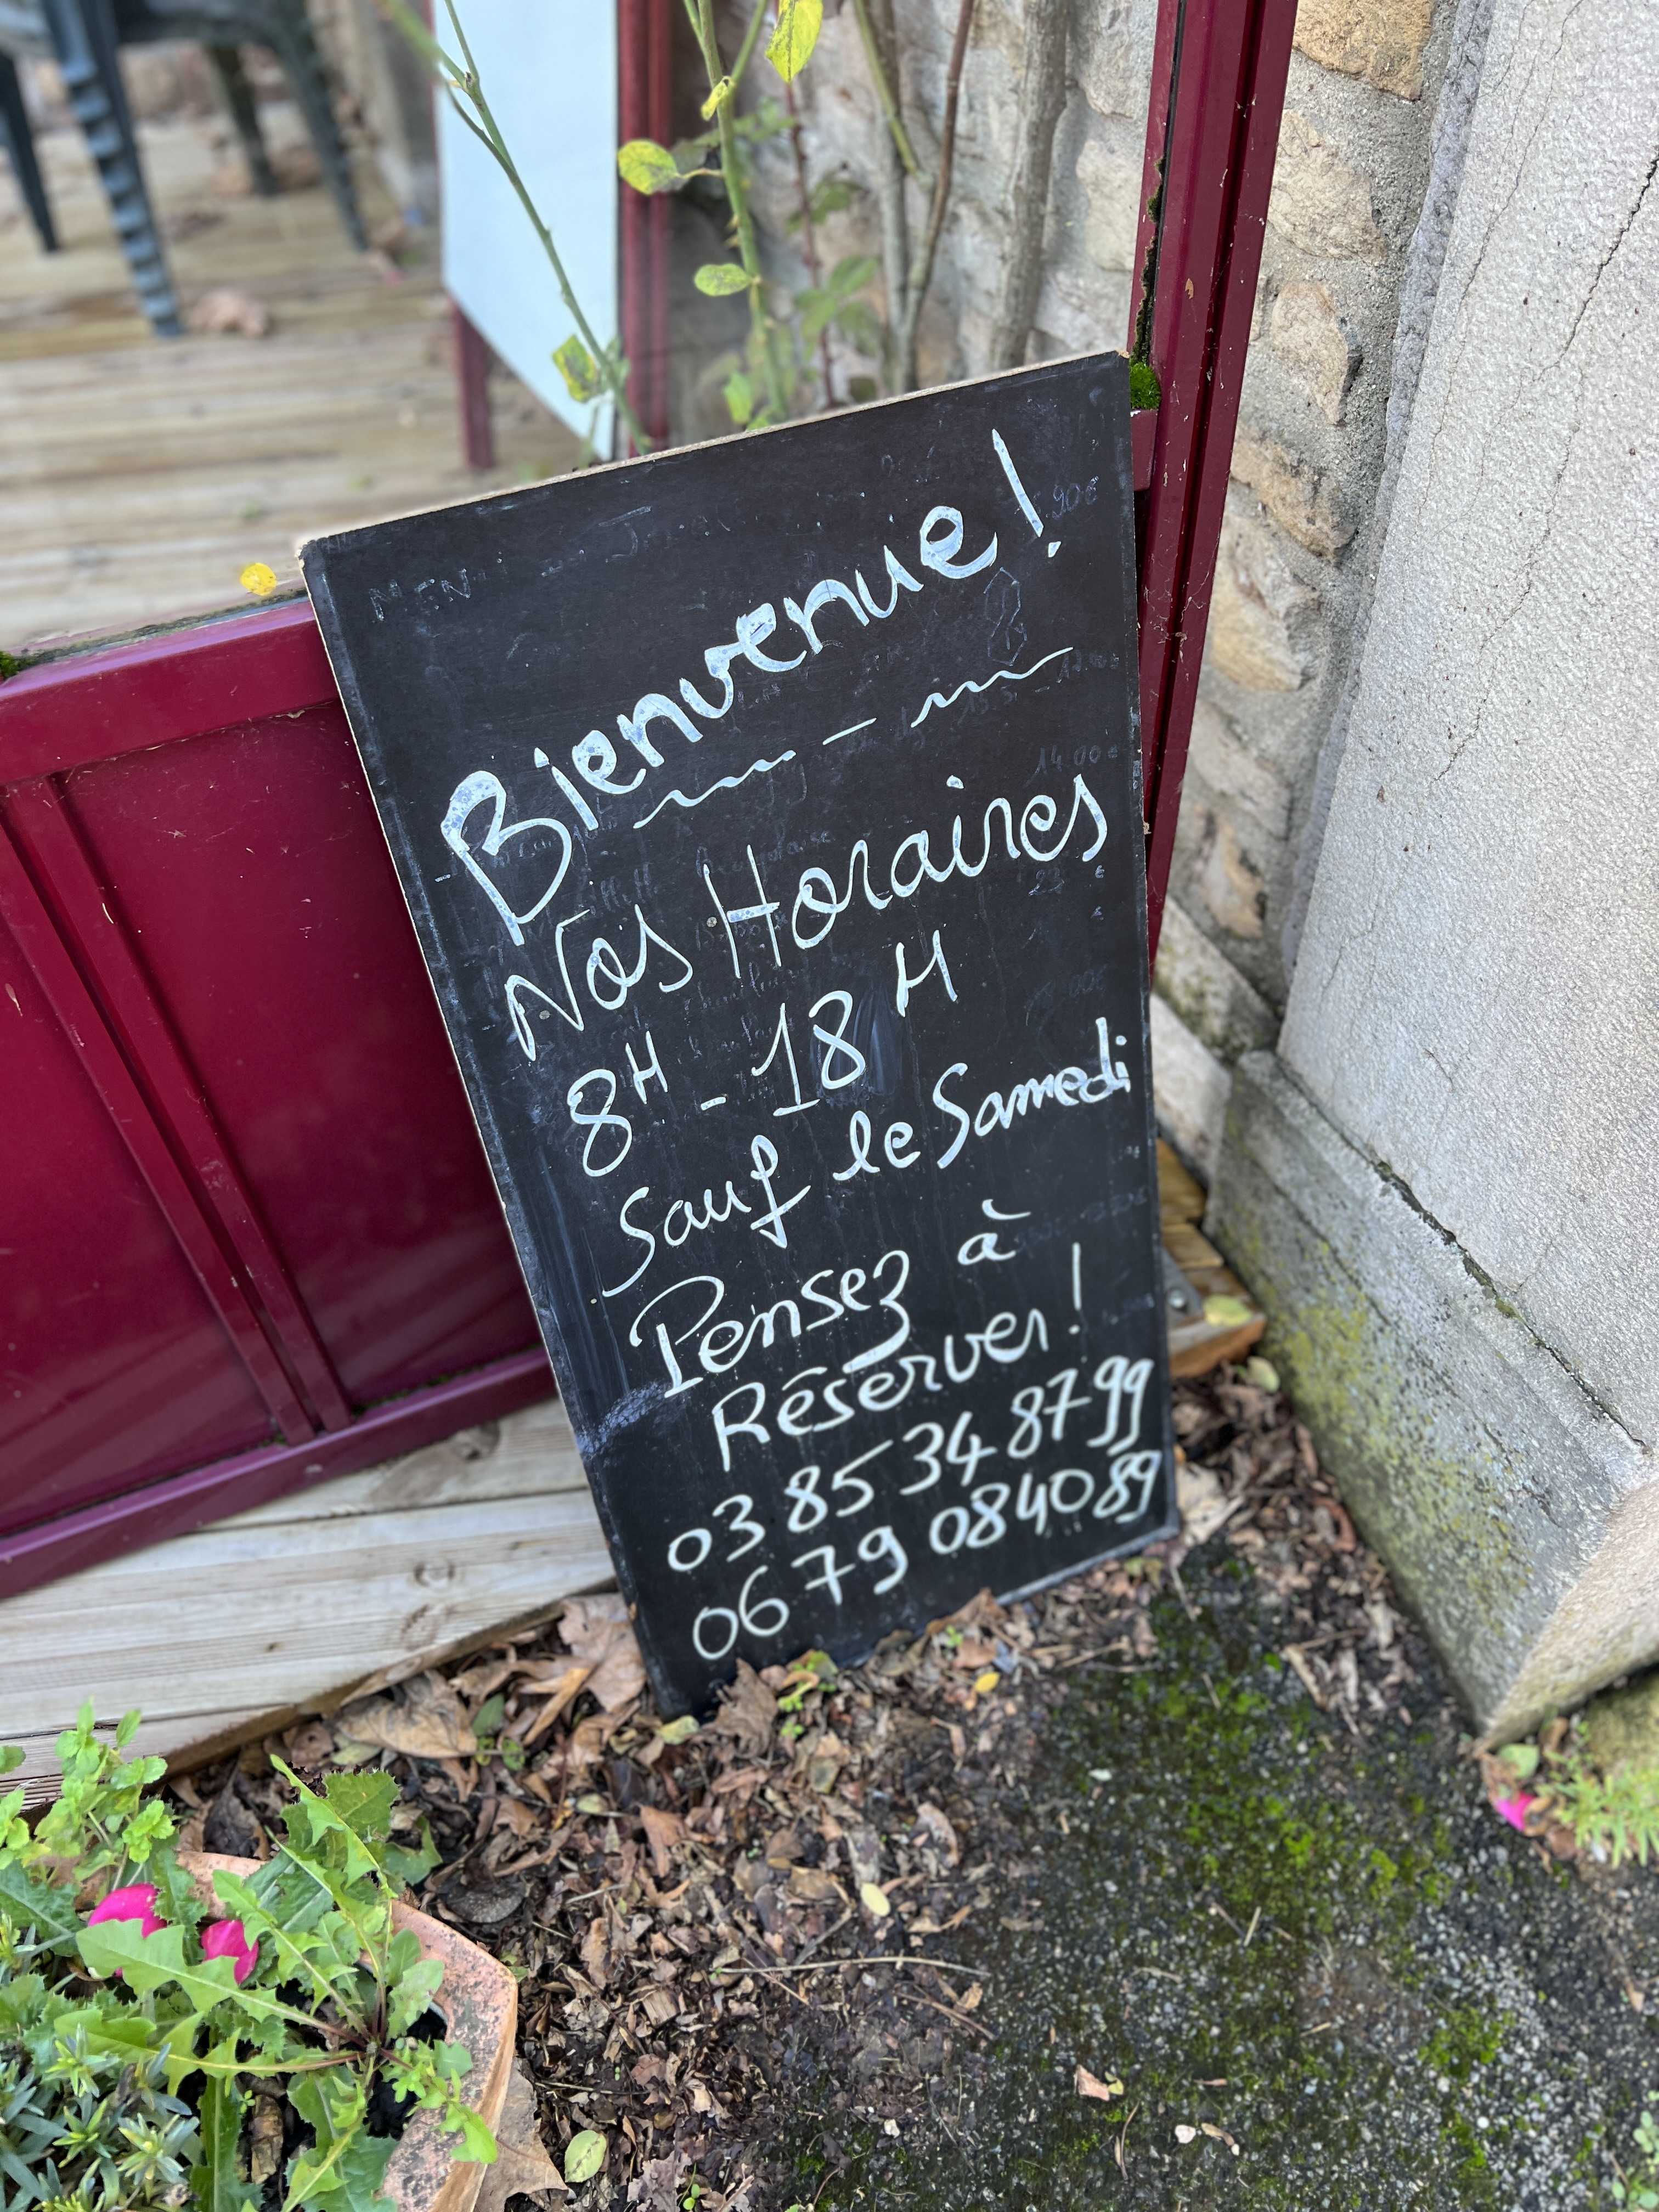 Bienvenue !
Nos Horaires
8H - 18H
Sauf le Samedi
Pensez à
Réserver !
03 85 34 87 99
06 79 08 40 89